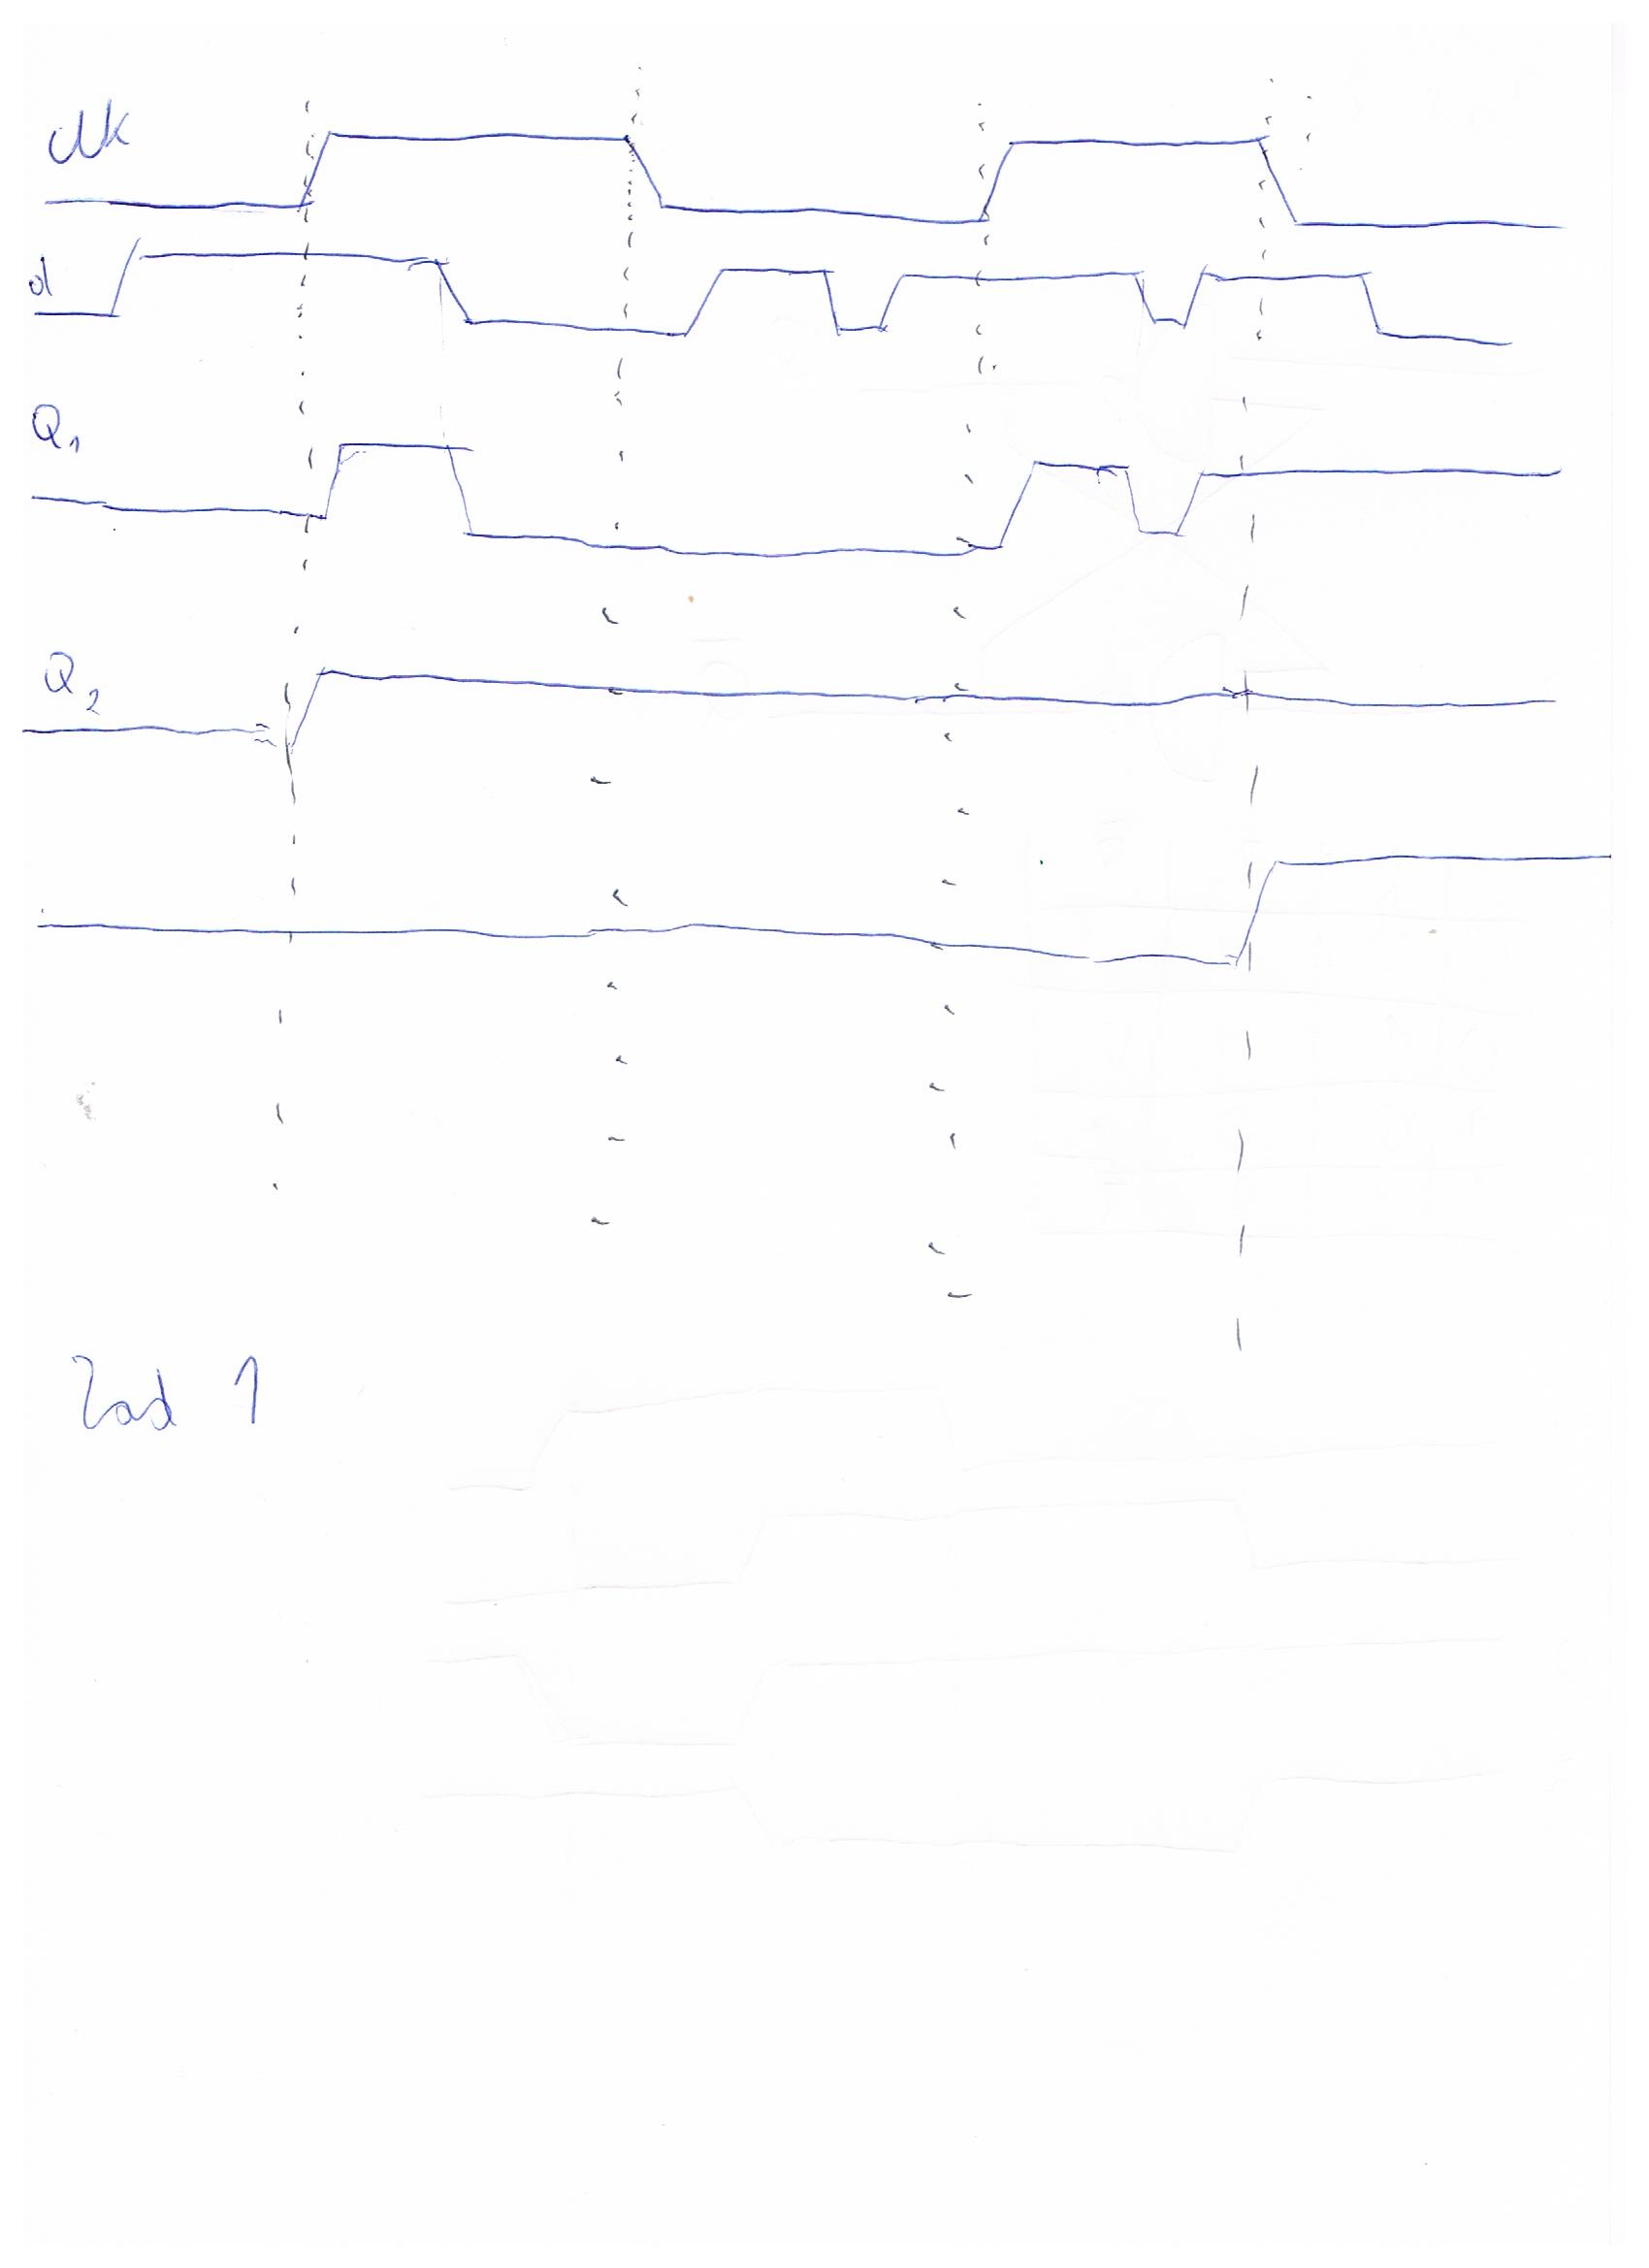 clk
d
Q1
Q2
Zad 1